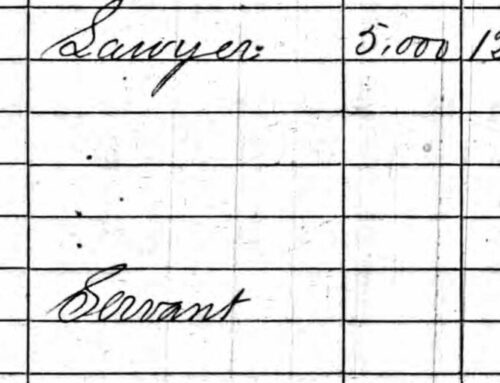 Lawyer. 5,000 12
Servant